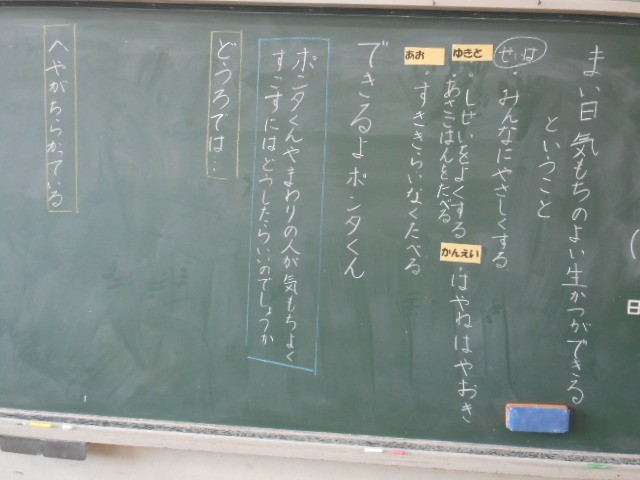 まい日気もちのよい生かつができる
ということ
せいは
・みんなにやさしくする
ゆきと
・しせいをよくする
・あさごはんをたべる
かんえい
・はやねはやおき
あお
・すききらいなくたべる
できるよポンタくん
ポンタくんやまわりの人が気もちよく
すごすにはどうしたらいいのでしょうか
どうろでは…
へやがちらかっている
日